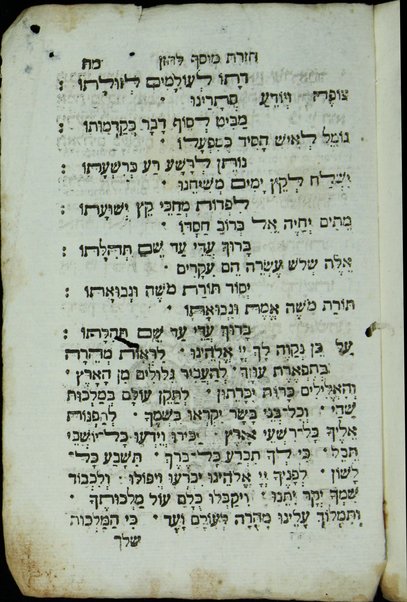 חזרת מוסף לרה״ן מח
דתו לעולמים לזולתו :
צופה ויודע סתרינו ·
מביט לסוף דבר בקדמותו :
גומל לאיש חסיד כמפעלו ·
נותן לרשע רע כרשעתו :
ישלח לקץ ימים משיחנו ·
לפדות מחכי קץ ישועתו :
מתים יחיה אל ברוב חסדו ·
ברוך עדי עד שם תהלתו :
אלה שלש עשרה הם עקרים ·
יסוד תורת משה ונבואתו :
תורת משה אמת ונבואתו ·
ברוך עדי עד שם תהלתו :
על כן נקוה לך יי אלהינו · לראות מהרה
בתפארת עוזך · להעביר גלולים מן הארץ ·
והאלילים כרות יכרתון · לתקן עולם במלכות
שדי · וכל בני בשר יקראו בשמך · להפנות
אליך כל רשעי ארץ · יכירו וידעו כל יושבי
תבל · כי לך תכרע כל ברך · תשבע כל
לשון · לפניך יי אלהינו יכרעו ויפולו · ולכבוד
שמך יקר יתנו · ויקבלו כלם עול מלכותך ·
ותמלוך עלינו מהרה לעולם ועד · כי המלכות
שלך